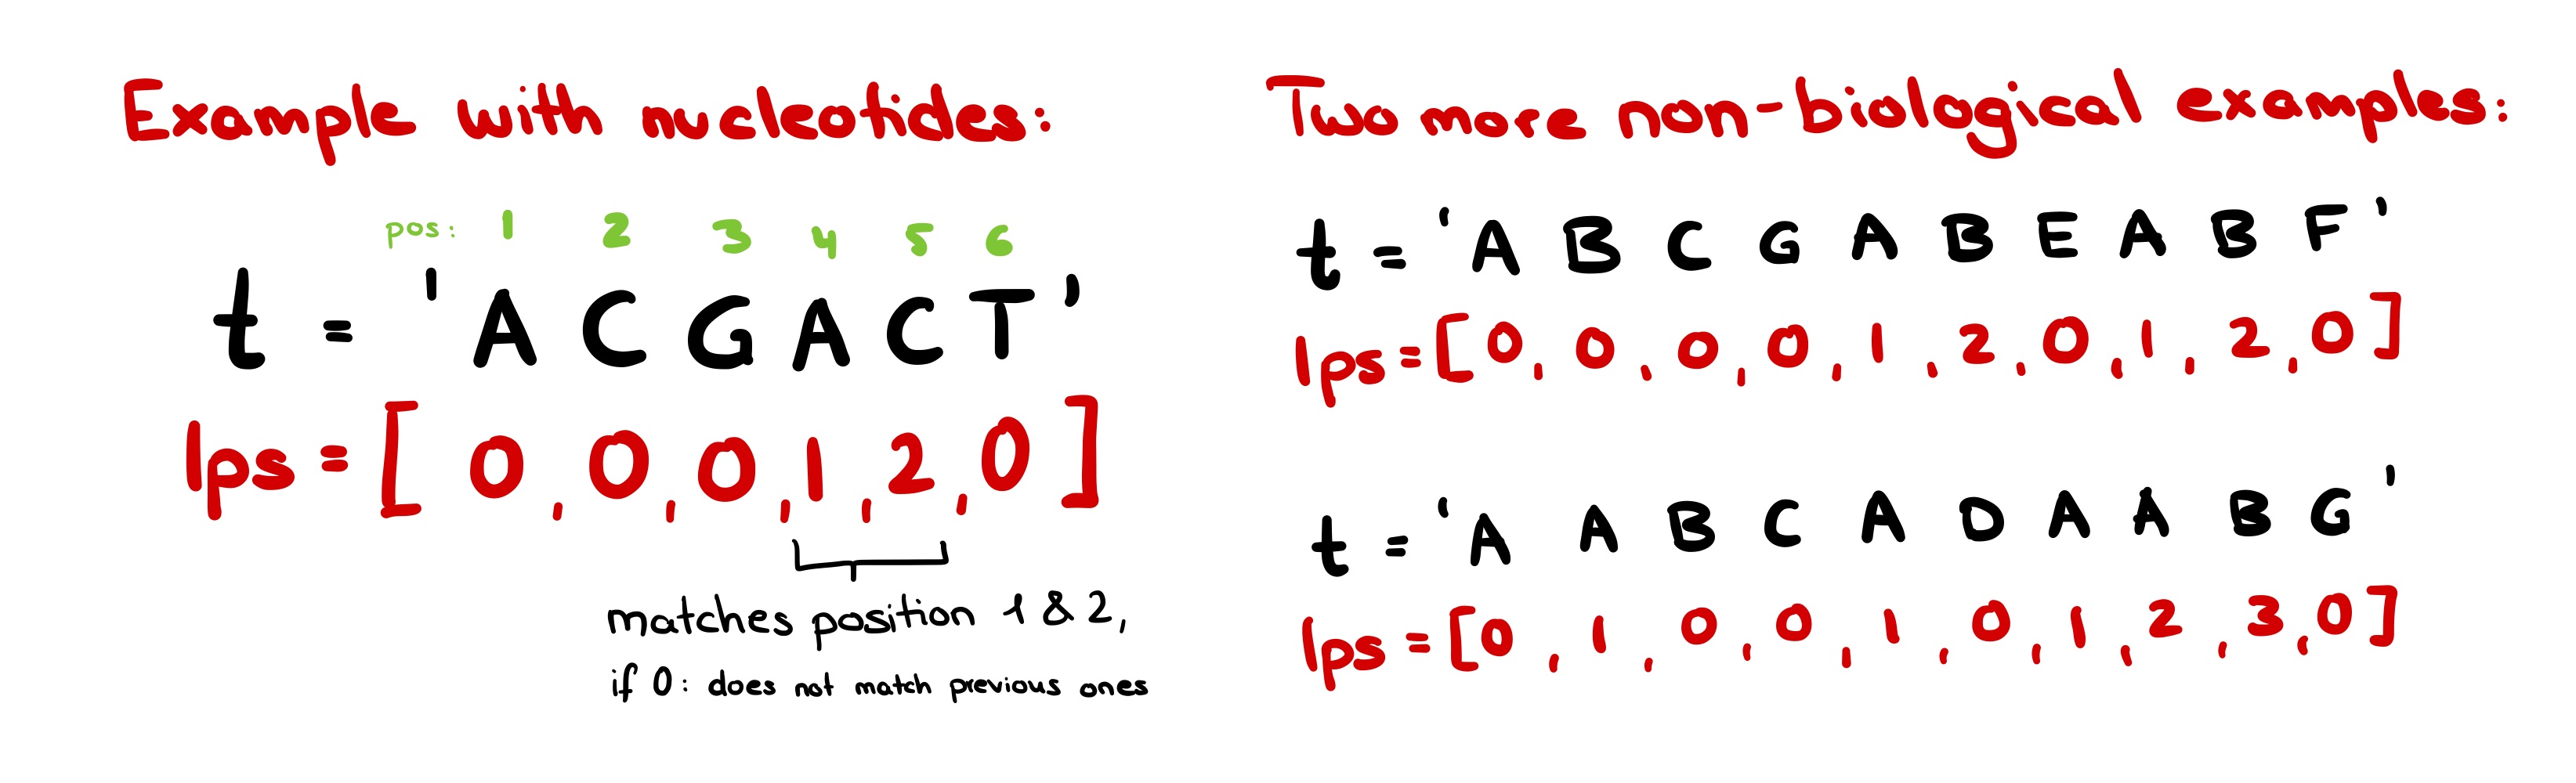 Example with nucleotides:
pos: 1 2 3 4 5 6
t = 'A C G A C T'
lps = [ 0, 0, 0, 1, 2, 0 ]
matches position 1 & 2,
if 0: does not match previous ones
Two more non-biological examples:
t = 'A B C G A B E A B F'
lps = [0, 0, 0, 0, 1, 2, 0, 1, 2, 0]
t = 'A A B C A D A A B G'
lps = [0, 1, 0, 0, 1, 0, 1, 2, 3, 0]